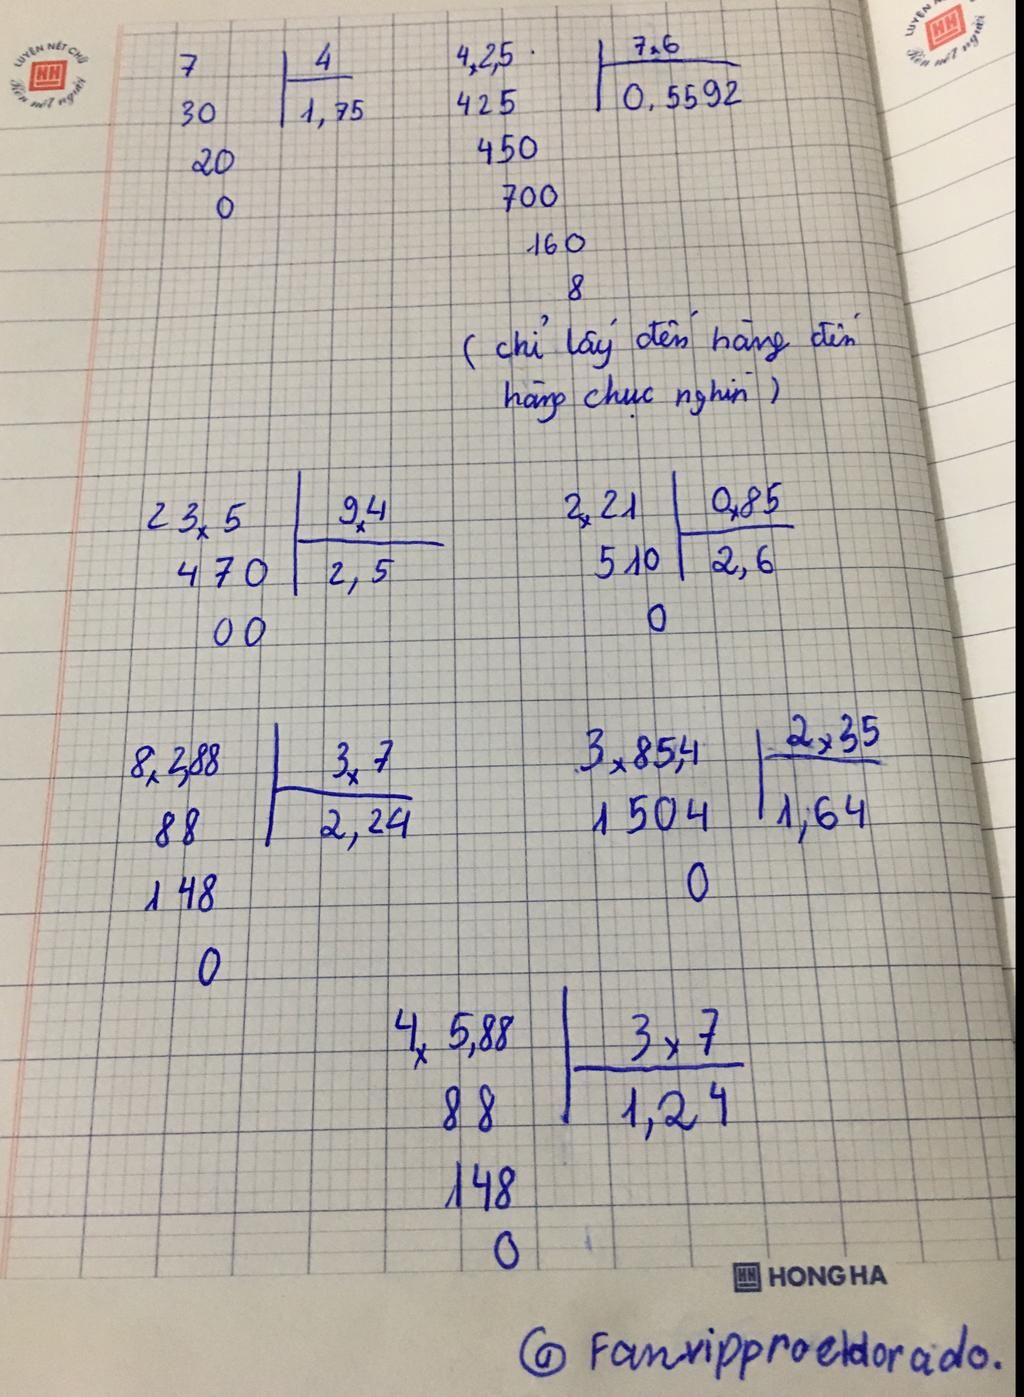 LUYỆN NÉT CHỮ
HH
Rèn nết người
LUYỆN NÉ
HH
nết người
7 | 4
30 | 1,75
20
0
4×2,5 | 7×6
425 | 0,5592
450
700
160
8
( chỉ lấy đến hàng đến
hàng chục nghìn )
23×5 | 9×4
470 | 2,5
00
2×21 | 0×85
510 | 2,6
0
8×2,88 | 3×7
88 | 2,24
148
0
3×85,4 | 2×35
1504 | 1,64
0
4×5,88 | 3×7
88 | 1,24
148
0
HH HONG HA
Fanvipproeldorado.